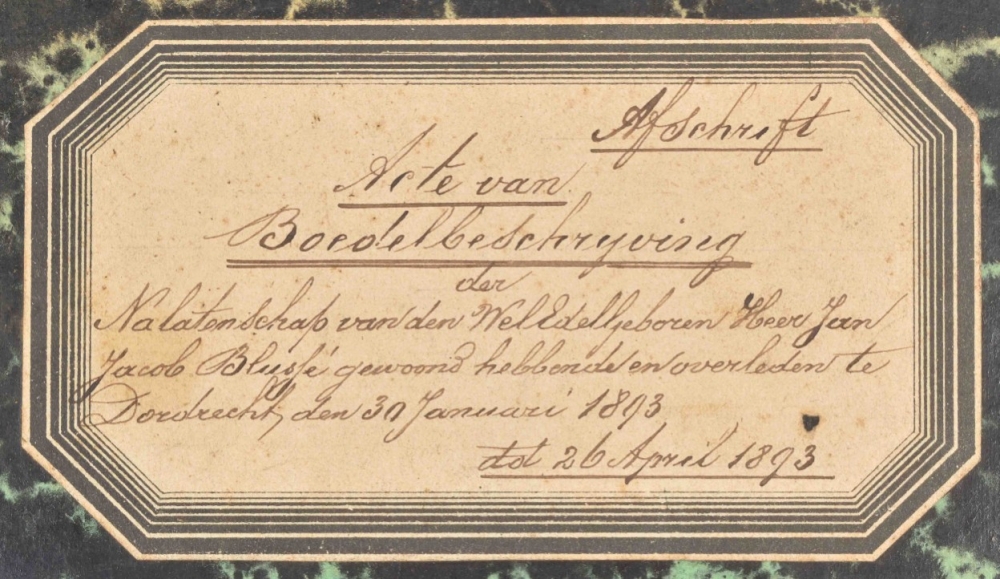 Afschrift
Acte van
Boedelbeschryving
der
Nalatenschap van den WelEdelgeboren Heer Jan
Jacob Blussé gewoond hebbende en overleden te
Dordrecht, den 30 Januari 1893
dd 26 April 1893